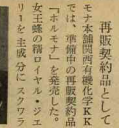 再販契約品として
モナ本舗関西有機化学KK
では、準備中の再販契約品
「ホルモナ」を発売した。
女王蜂の精ロイヤル・ジェ
リーを主成分に スクワラ